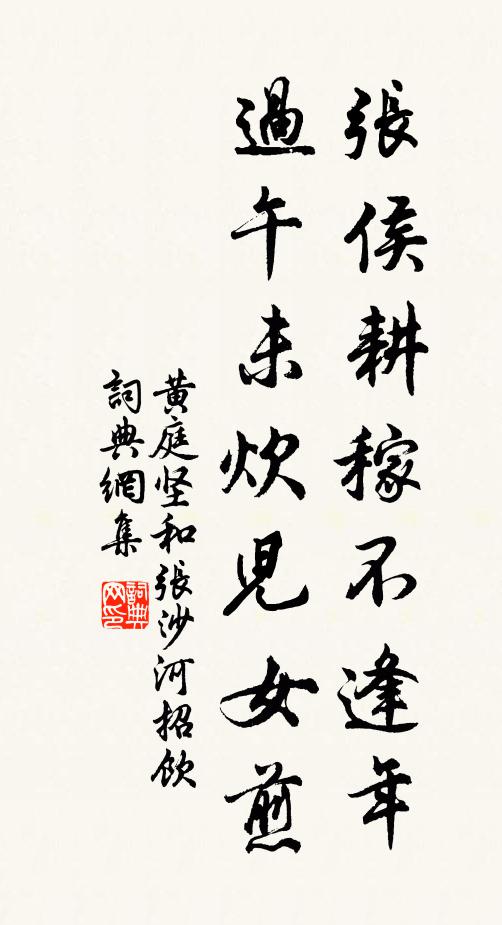 張侯耕稼不逢年
過午未炊兒女煎
黄庭坚和張沙河招飲
詞典網集
詞典网印